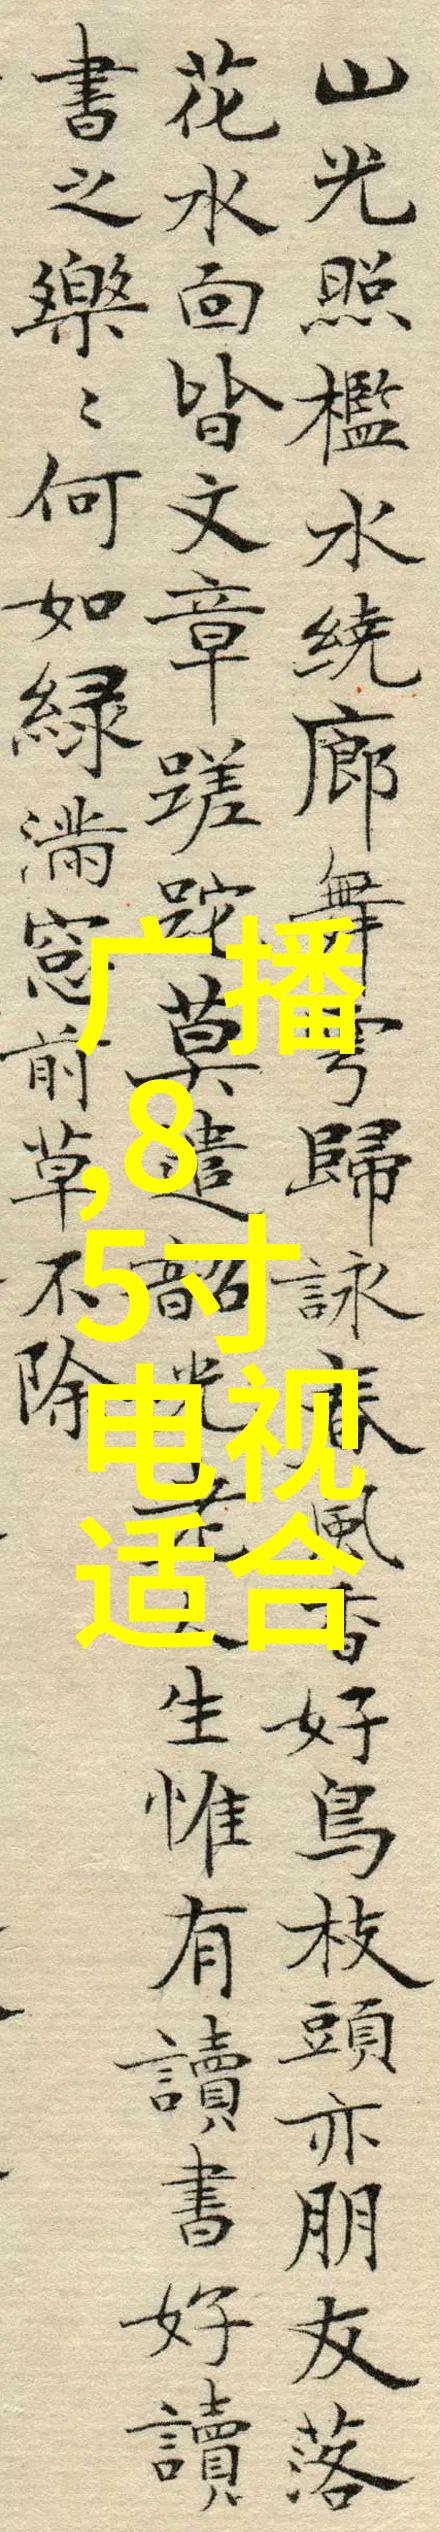 山光照檻水绕廊舞雩歸詠春風香好鳥枝頭亦朋友落
花水面皆文章蹉跎莫遣韶光老人生惟有讀書好讀
書之樂〻何如緑满窓前草不除
广播
,8
5寸
电视
适合